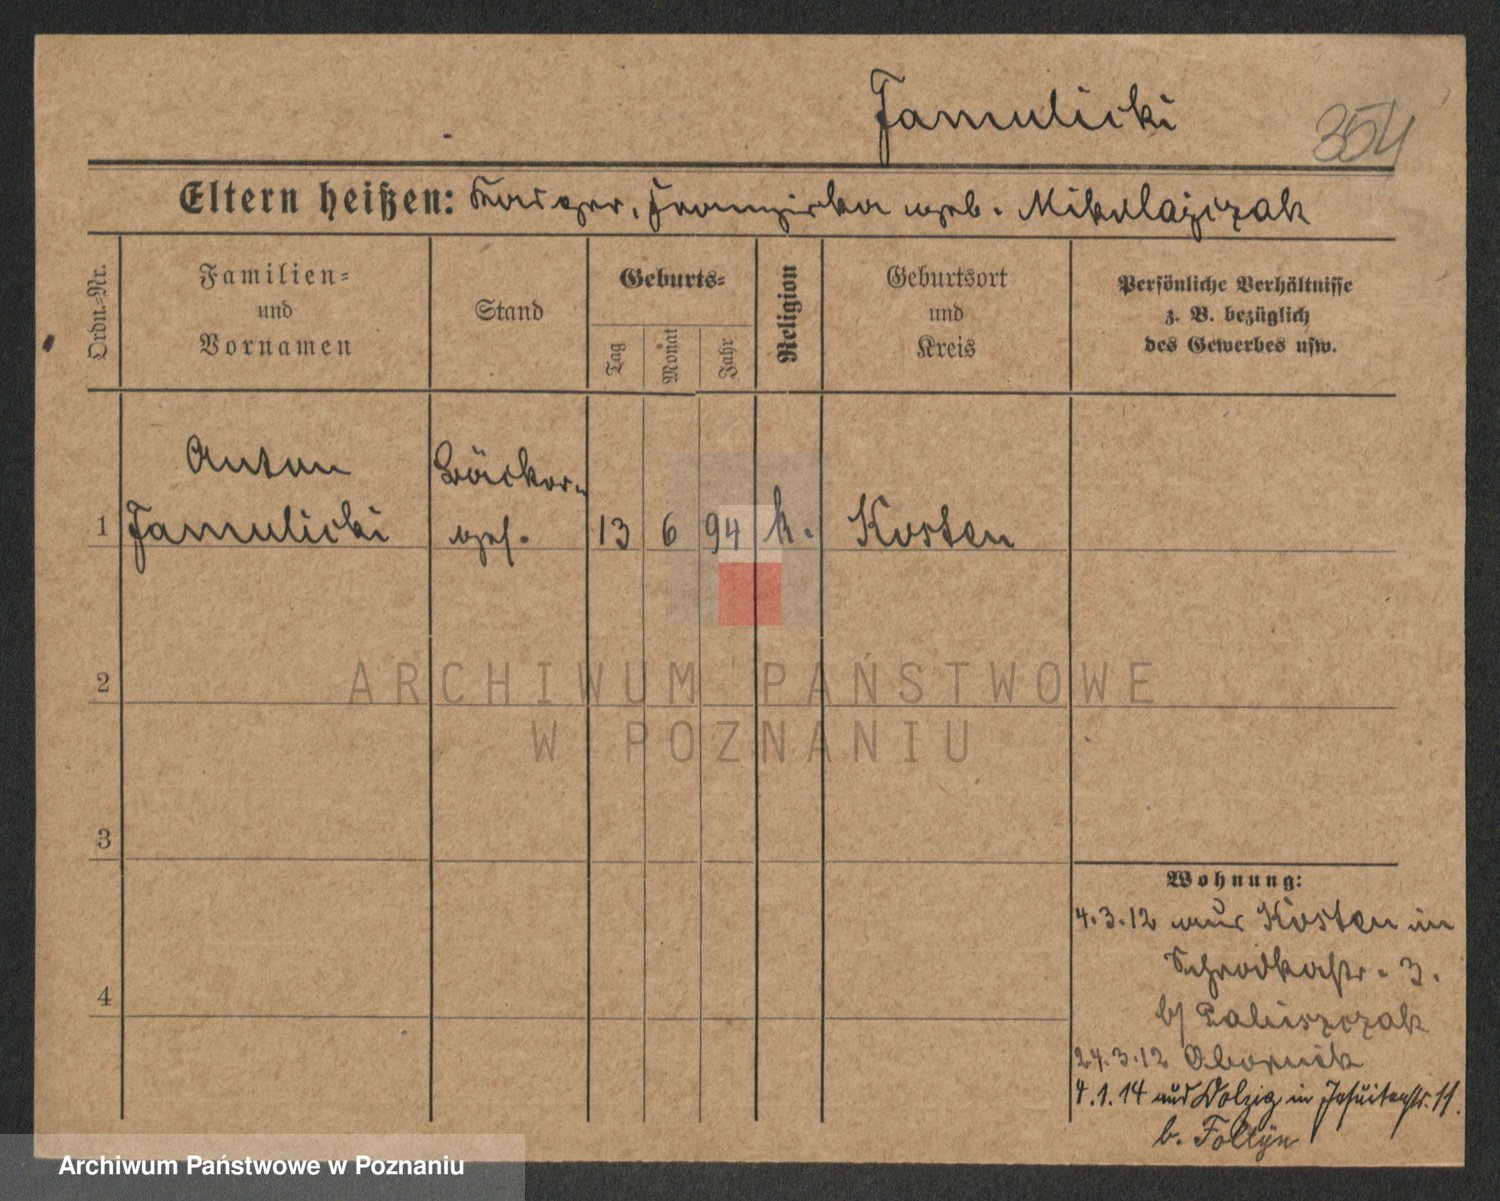 Jamulicki
354
Eltern heißen: Franziska geb. Mikolajczak
Ordn.-Nr.
Familien- und Vornamen
Stand
Geburts-
Tag
Monat
Jahr
Religion
Geburtsort und Kreis
Persönliche Verhältnisse
z. B. bezüglich
des Gewerbes usw.
Anton
Bäcker-
1 Jamulicki ges. 13 6 94 k. Kosten
2
3
4
Wohnung:
4.3.12 aus Kosten in
Schrodkastr. 3.
b/ Paluszczak
24.3.12 Obornik
4.1.14 aus Dolzig in Jesuitenstr. 11.
b. Foltyn
ARCHIWUM PAŃSTWOWE
W POZNANIU
Archiwum Państwowe w Poznaniu